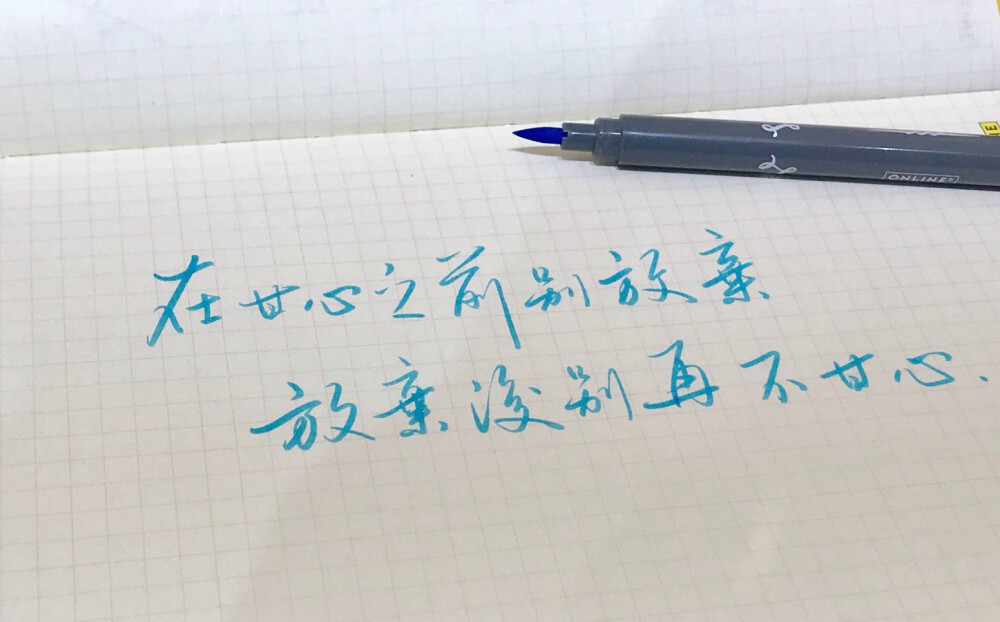 ONLINE
在甘心之前别放棄
放棄後别再不甘心.